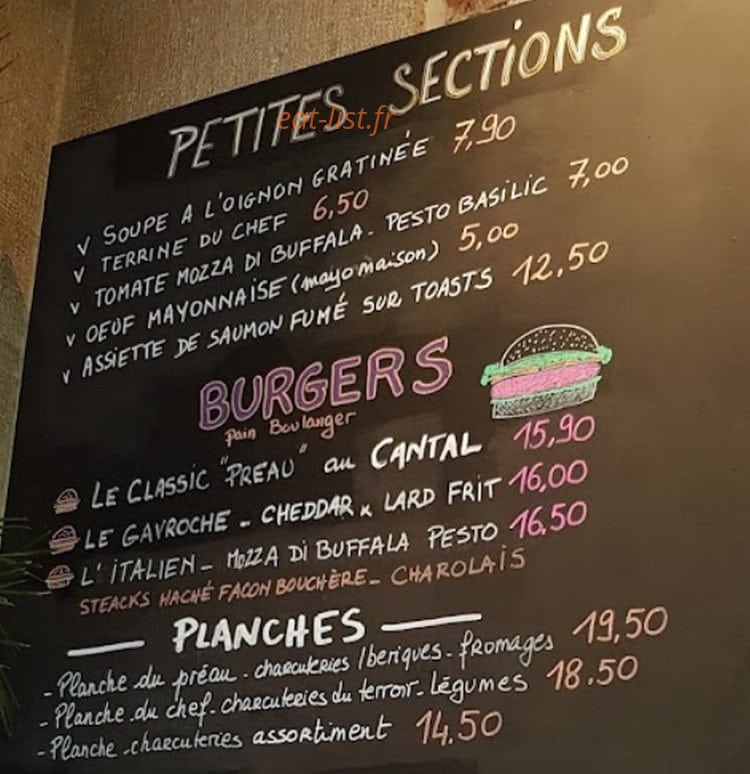 PETITES SECTIONS
eat-list.fr
SOUPE A L'OIGNON GRATINÉE 7,90
TERRINE DU CHEF 6,50
TOMATE MOZZA DI BUFFALA. PESTO BASILIC 7,00
OEUF MAYONNAISE (mayo maison) 5,00
ASSIETTE DE SAUMON FUMÉ SUR TOASTS 12,50
BURGERS
Pain Boulanger
LE CLASSIC "PREAU" au CANTAL 15,90
LE GAVROCHE - CHEDDAR x LARD FRIT 16,00
L'ITALIEN - MOZZA DI BUFFALA PESTO 16,50
STEACKS HACHÉ FACON BOUCHÈRE - CHAROLAIS
PLANCHES
- Planche du préau - charcuteries Iberiques - fromages 19,50
- Planche du chef - charcuteries du terroir - légumes 18.50
- Planche - charcuteries assortiment 14,50